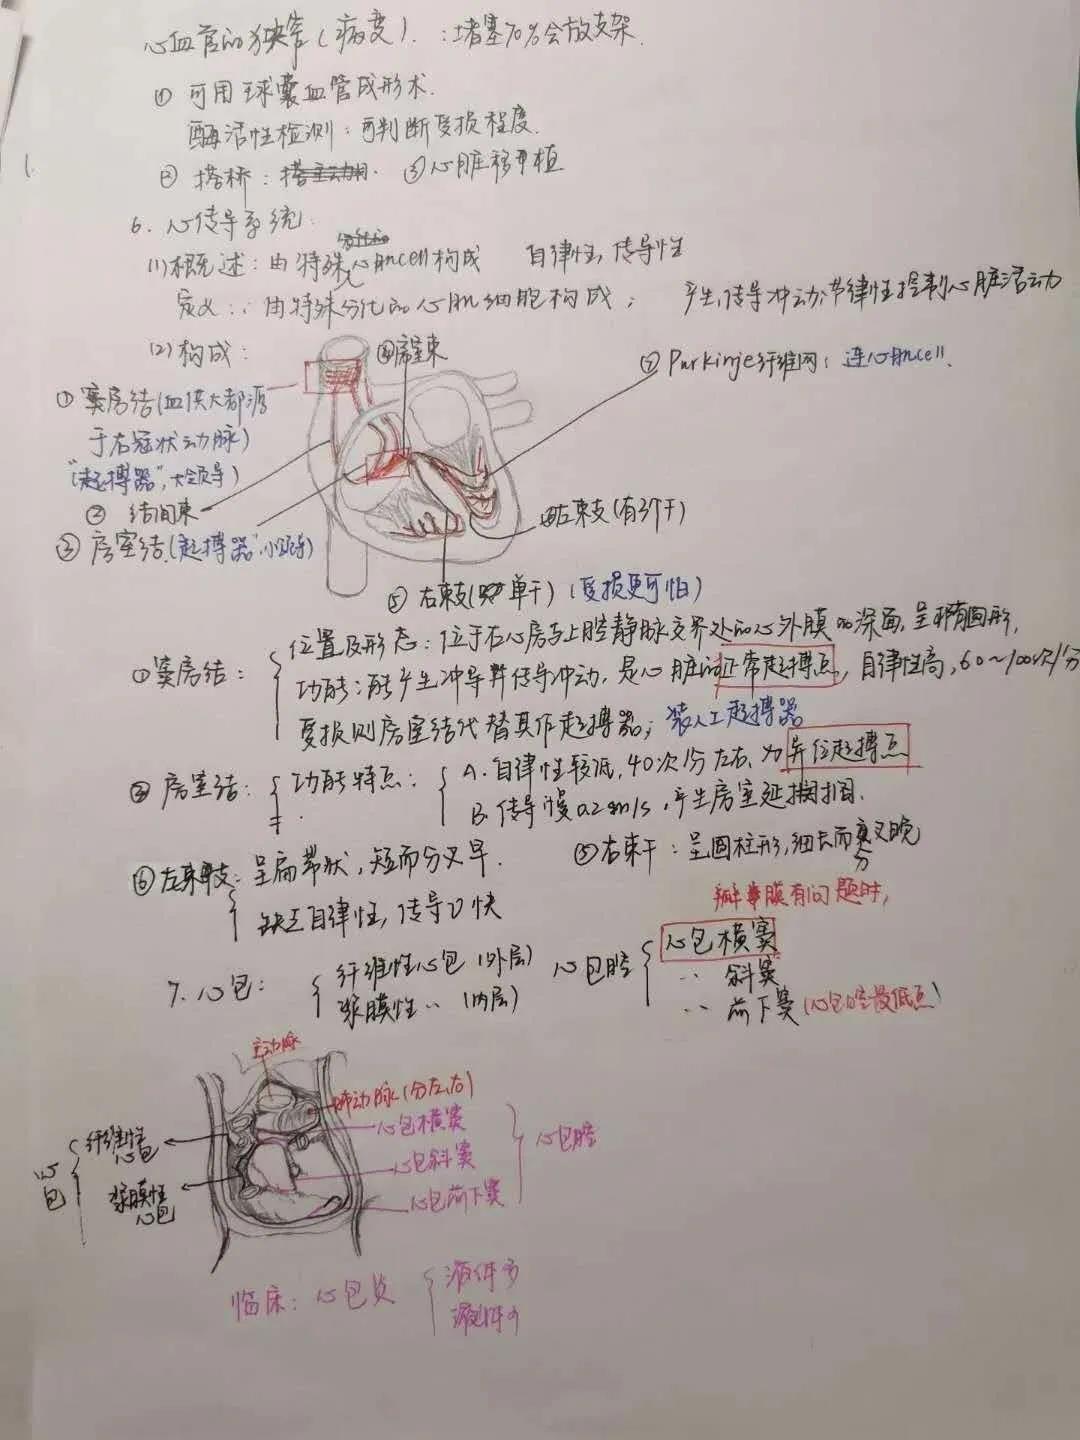 心血管的狭窄(病变).:堵塞70%会放支架.
① 可用球囊血管成形术.
酶活性检测:可判断受损程度.
② 搭桥: ③心脏移植
1.
6. 心传导系统:
(1)概述:由特殊心肌cell构成 自律性,传导性
定义:由特殊分化的心肌细胞构成; 产生,传导冲动;节律性控制心脏活动
(2)构成:
④房室束
⑦ Purkinje纤维网:连心肌cell.
① 窦房结(血供大都源
于右冠状动脉)
"起搏器",大领导)
② 结间束
③ 房室结.("起搏器",小领导)
⑥左束支(有分干)
⑤ 右束支(单干)(受损更可怕)
①窦房结: 位置及形态:位于右心房与上腔静脉交界处的心外膜的深面,呈椭圆形,
功能:能产生冲导并传导冲动,是心脏的正常起搏点,自律性高,60~100次/分
受损则房室结代替其作起搏器;装人工起搏器
③ 房室结: 功能特点: A.自律性较低,40次/分左右,为异位起搏点
B.传导慢0.2m/s,产生房室延搁.
⑥左束支:呈扁带状,短而分叉早. ⑤右束干:呈圆柱形,细长而分叉晚
缺乏自律性,传导快
瓣膜有问题时,
7.心包: 纤维性心包(外层) 心包腔 心包横窦
浆膜性‥(内层) ‥ 斜窦
‥ 前下窦(心包腔最低点)
主动脉
肺动脉(分左,右)
心包横窦
纤维性心包
心包斜窦
心包腔
心包
浆膜性心包
心包前下窦
临床:心包炎